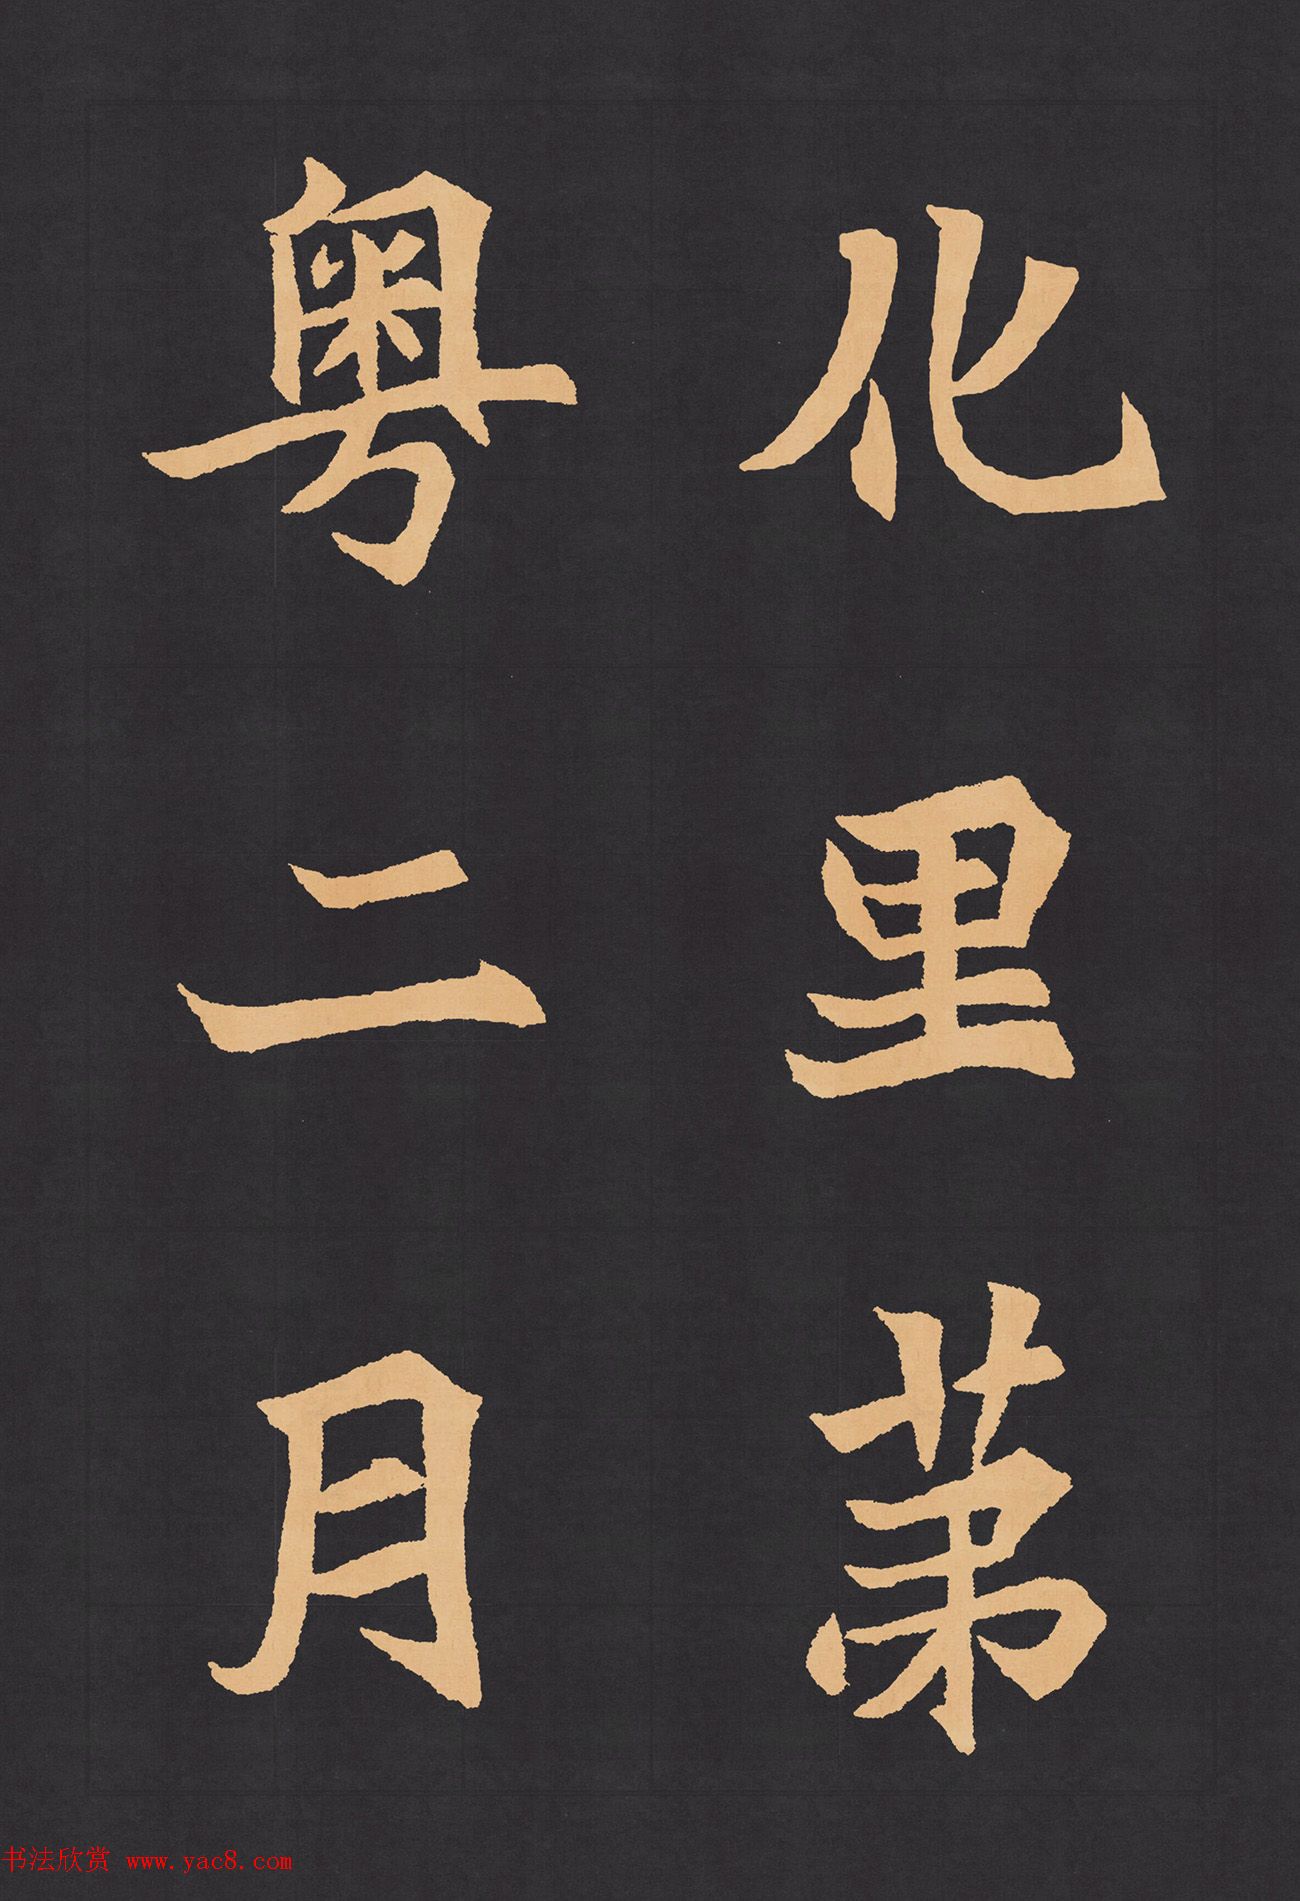 化里苐
粤二月
书法欣赏 www.yac8.com